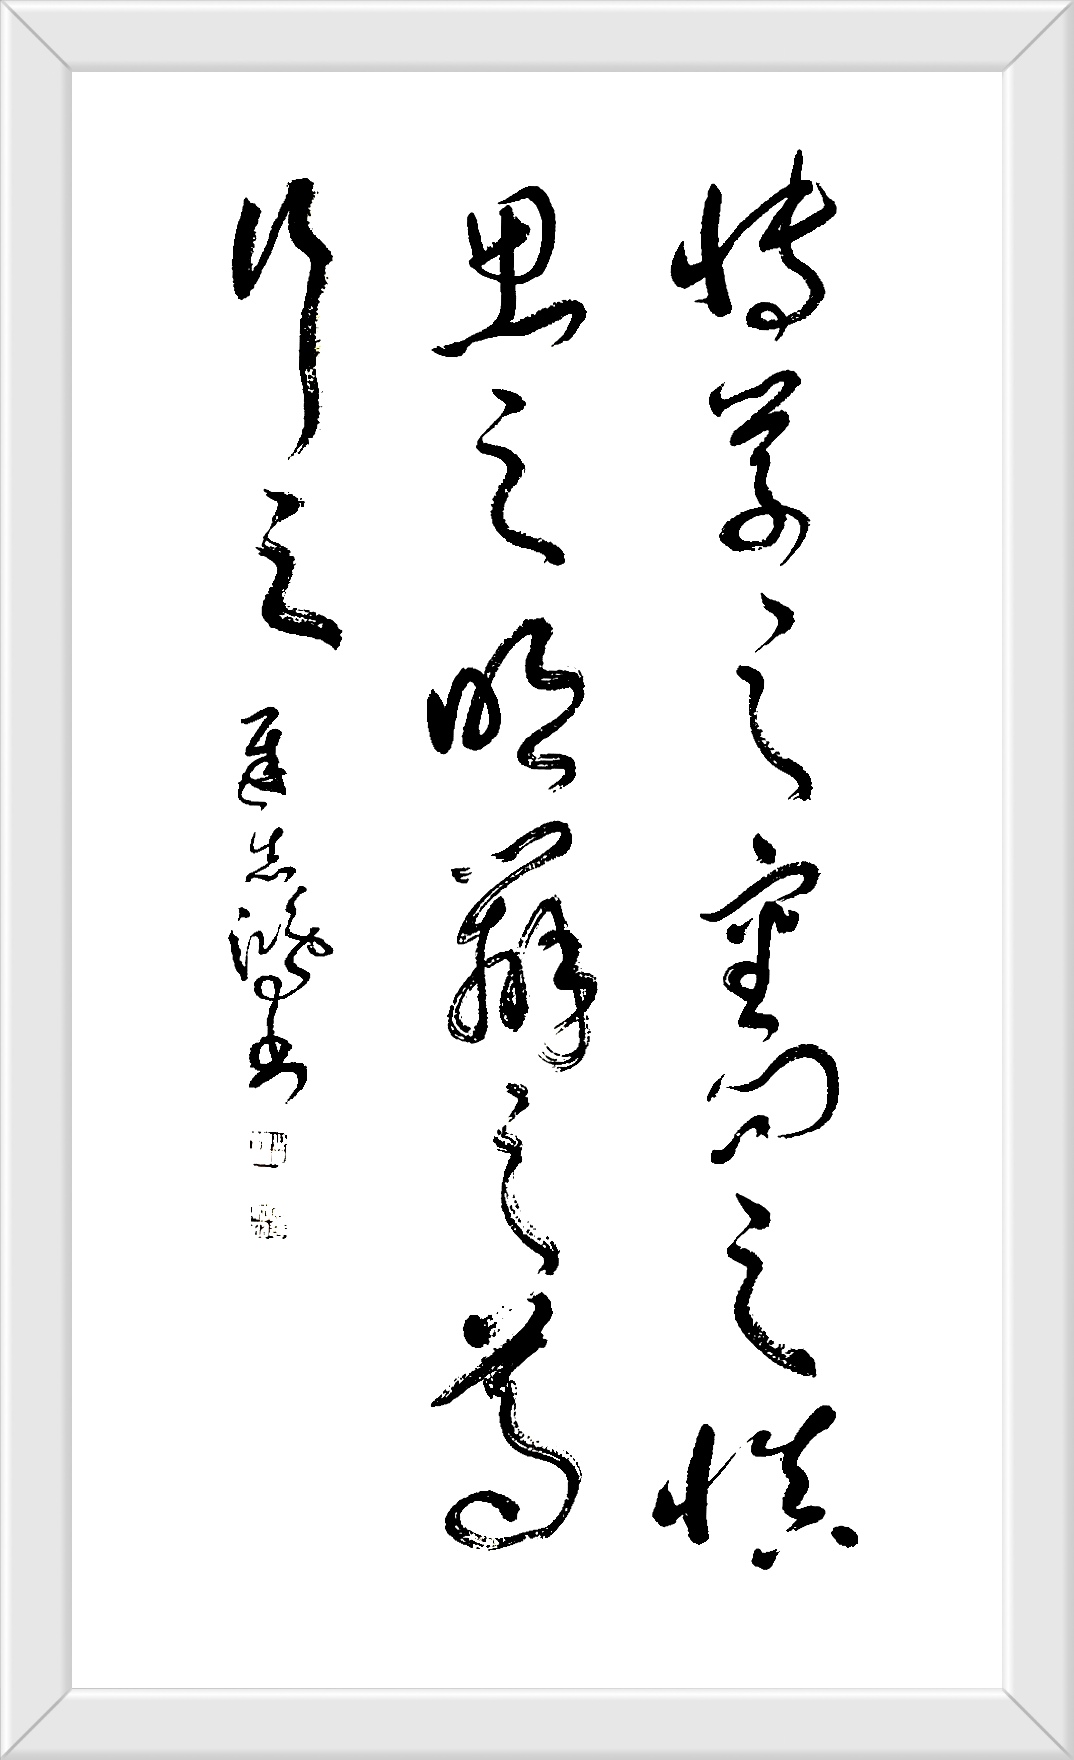 博学之审问之慎
思之明辨之笃
行之 志鸿书